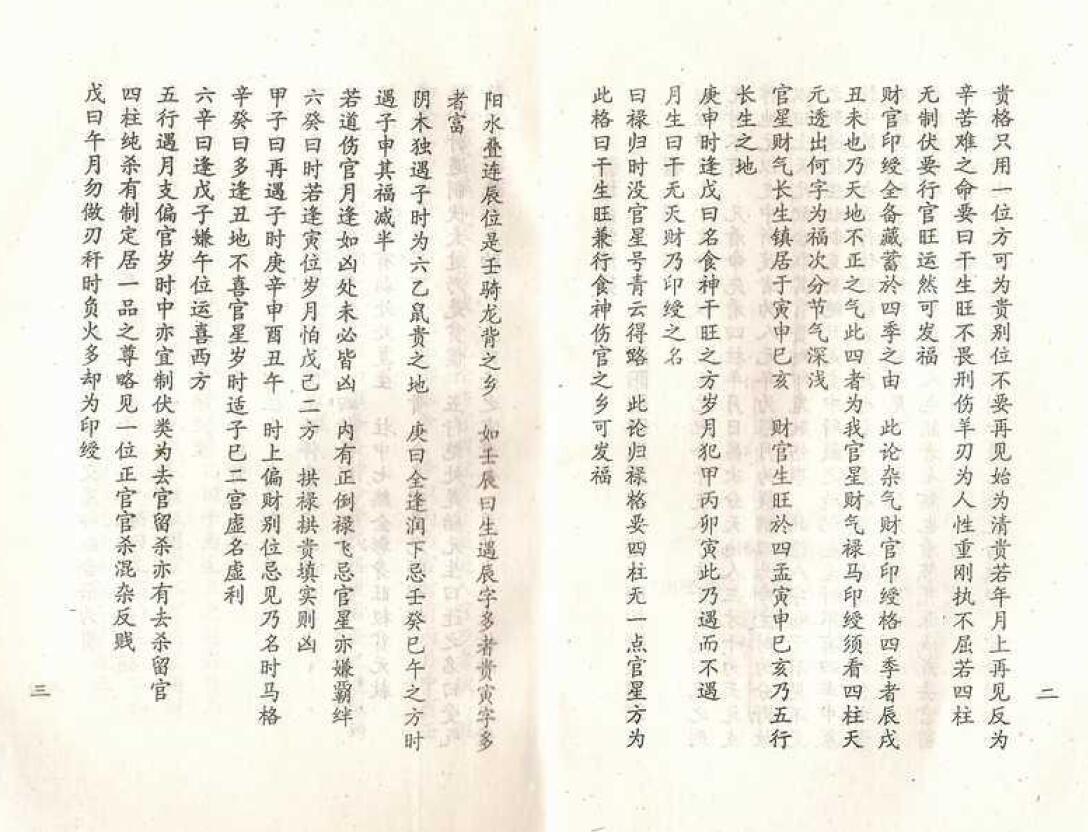 贵格只用一位方可为贵别位不要再见始为清贵若年月上再见反为
辛苦难之命要曰干生旺不畏刑伤羊刃为人性重刚执不屈若四柱
无制伏要行官旺运然可发福
财官印绶全备藏蓄於四季之由 此论杂气财官印绶格四季者辰戌
丑未也乃天地不正之气此四者为我官星财气禄马印绶须看四柱天
元透出何字为福次分节气深浅
官星财气长生镇居于寅申巳亥 财官生旺於四孟寅申巳亥乃五行
长生之地
庚申时逢戊曰名食神干旺之方岁月犯甲丙卯寅此乃遇而不遇
月生曰干无天财乃印绶之名
曰禄归时没官星号青云得路 此论归禄格要四柱无一点官星方为
此格曰干生旺兼行食神伤官之乡可发福
二
阳水叠连辰位是壬骑龙背之乡 如壬辰曰生遇辰字多者贵寅字多
者富
阴木独遇子时为六乙鼠贵之地 庚曰全逢润下忌壬癸巳午之方时
遇子申其福减半
若道伤官月逢如凶处未必皆凶 内有正倒禄飞忌官星亦嫌羁绊
六癸曰时若逢寅位岁月怕戊己二方 拱禄拱贵填实则凶
甲子曰再遇子时庚辛申酉丑午 时上偏财别位忌见乃名时马格
辛癸曰多逢丑地不喜官星岁时适子巳二宫虚名虚利
六辛曰逢戊子嫌午位运喜西方
五行遇月支偏官岁时中亦宜制伏类为去官留杀亦有去杀留官
四柱纯杀有制定居一品之尊略见一位正官官杀混杂反贱
戊曰午月勿做刃秆时负火多却为印绶
三